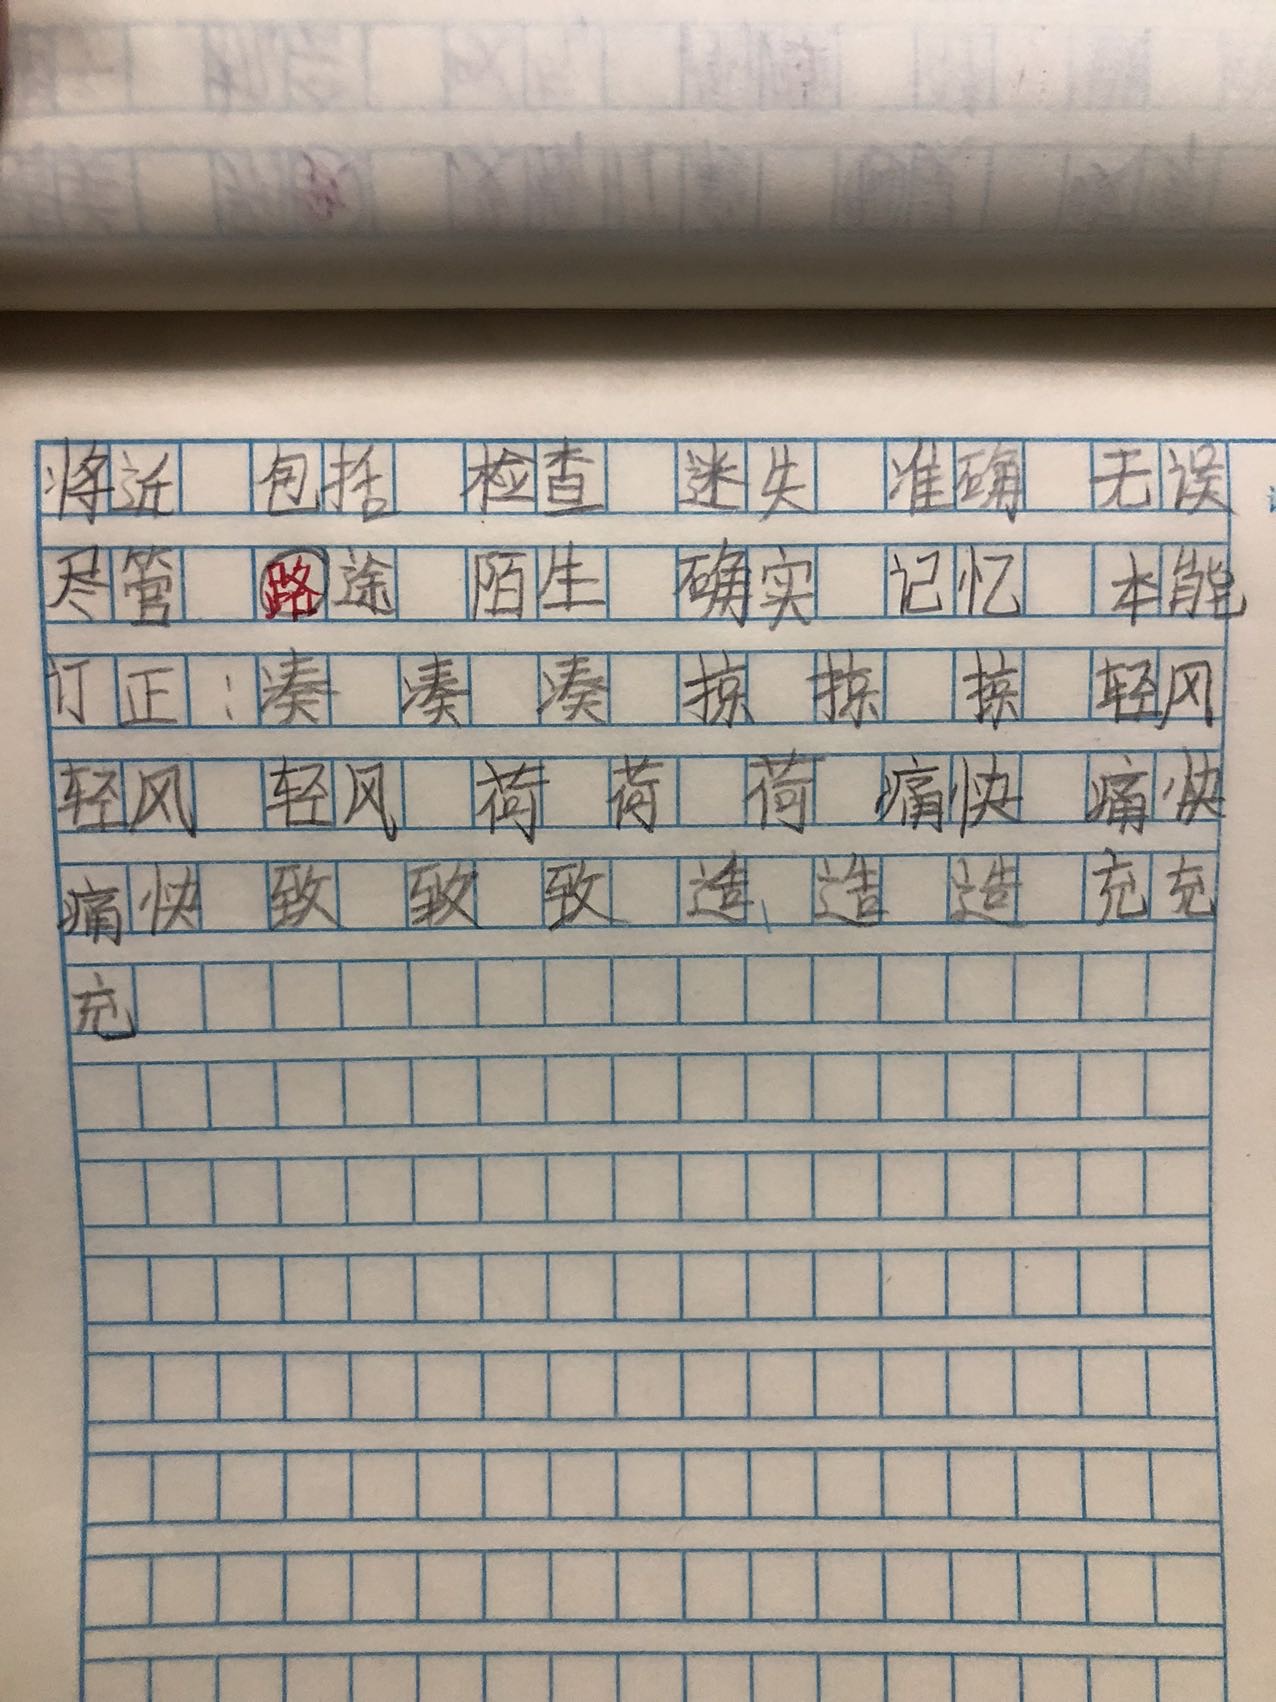 将近 包括 检查 迷失 准确 无误
尽管 路途 陌生 确实 记忆 本能
订正: 凑 凑 凑 掠 掠 掠 轻风
轻风 轻风 荷 荷 荷 痛快 痛快
痛快 致 致 致 造 造 造 充充
充